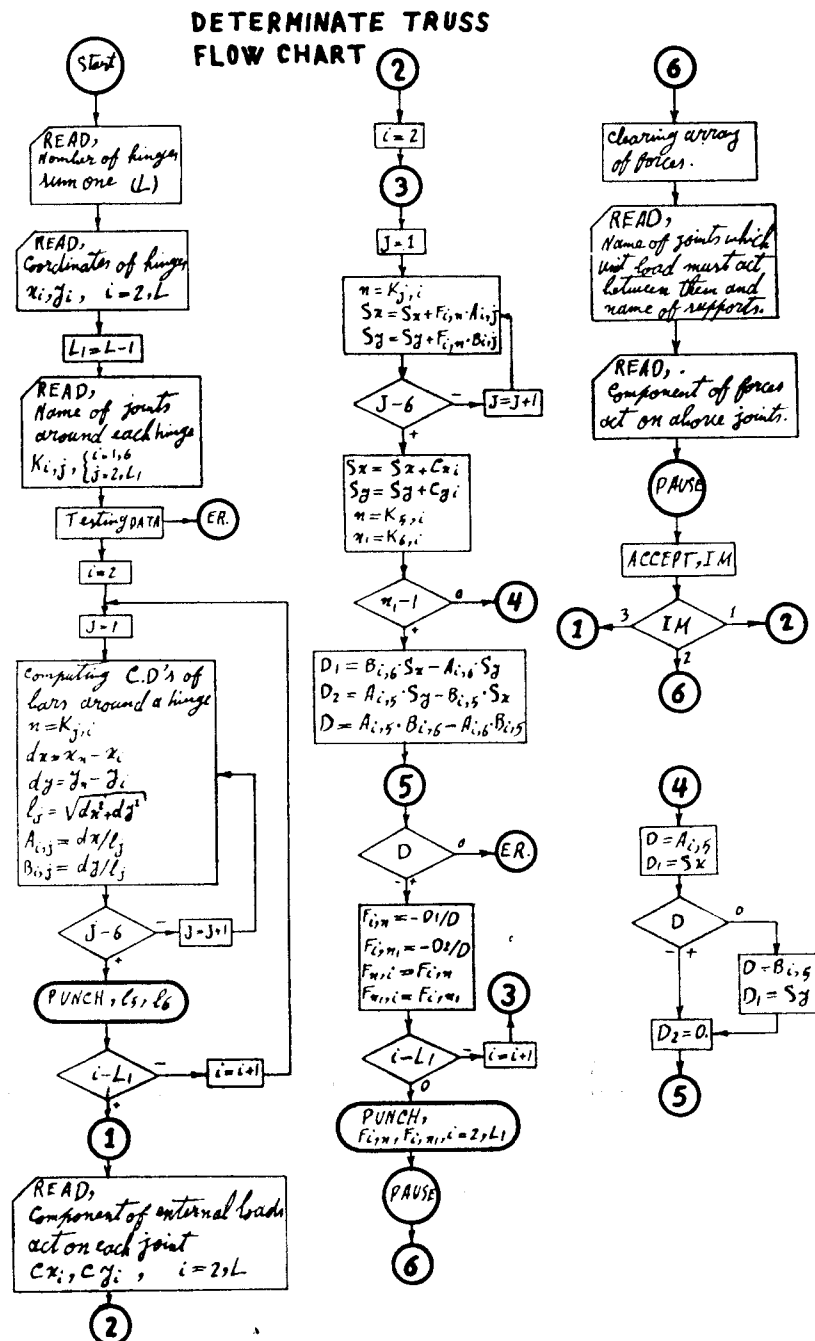 DETERMINATE TRUSS
FLOW CHART
Start
READ,
Number of hinges
sum one (L)
READ,
Coordinates of hinges
xi, yi, i=2,L
L1=L-1
READ,
Name of joints
around each hinge
Ki,j, { i=1,6
j=2,L1
Testing DATA
ER.
i=2
J=1
Computing C.D's of
bars around a hinge
n=Kj,i
dx=xn-xi
dy=yn-yi
lj=√dx²+dy²
Ai,j=dx/lj
Bi,j=dy/lj
j-6
-
J=J+1
+
PUNCH, l5, l6
i-L1
-
i=i+1
+
1
READ,
Component of external loads
act on each joint
Cxi, Cyi, i=2,L
2
2
i=2
3
J=1
n=Kj,i
Sx=Sx+Fi,n·Ai,j
Sy=Sy+Fi,n·Bi,j
J-6
-
J=J+1
+
Sx=Sx+Cxi
Sy=Sy+Cyi
n=K5,i
n1=K6,i
n1-1
0
4
+
D1=Bi,6·Sx-Ai,6·Sy
D2=Ai,5·Sy-Bi,5·Sx
D=Ai,5·Bi,6-Ai,6·Bi,5
5
D
0
ER.
- +
Fi,n=-D1/D
Fi,n1=-D2/D
Fn,i=Fi,n
Fn1,i=Fi,n1
3
i-L1
-
i=i+1
0
PUNCH,
Fi,n, Fi,n1, i=2,L1
PAUSE
6
6
Clearing array
of forces.
READ,
Name of joints which
unit load must act
between them and
name of supports.
READ, .
Component of forces
act on above joints.
PAUSE
ACCEPT, IM
1
3
IM
1
2
2
6
4
D=Ai,5
D1=Sx
D
0
- +
D=Bi,5
D1=Sy
D2=0.
5